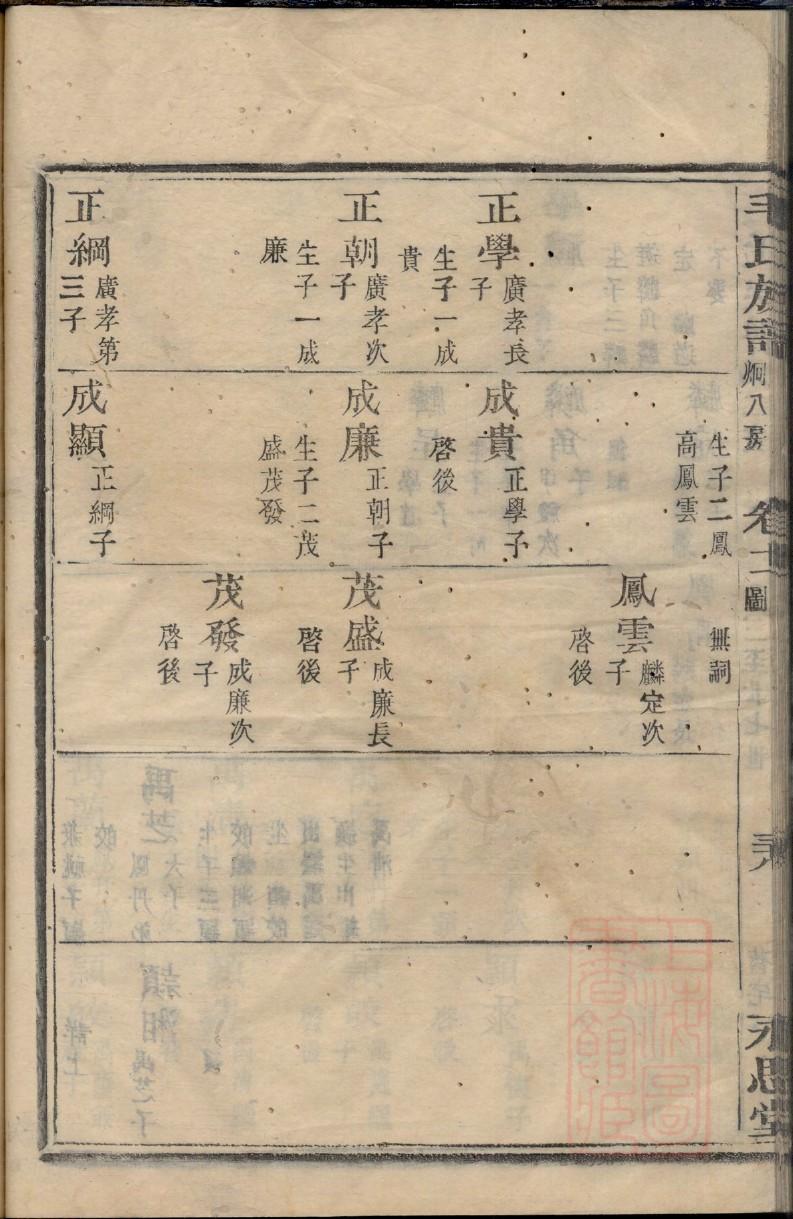 毛氏族譜 烱八房 卷十二 圖 永思堂
正學 廣孝長子
生子一成貴
正朝 廣孝次子
生子一成廉
正綱 廣孝第三子
生子二鳳高鳳雲
成貴 正學子
啓後
成廉 正朝子
生子二茂盛茂發
成顯 正綱子
無詞
鳳雲 麟定次子
啓後
茂盛 成廉長子
啓後
茂發 成廉次子
啓後